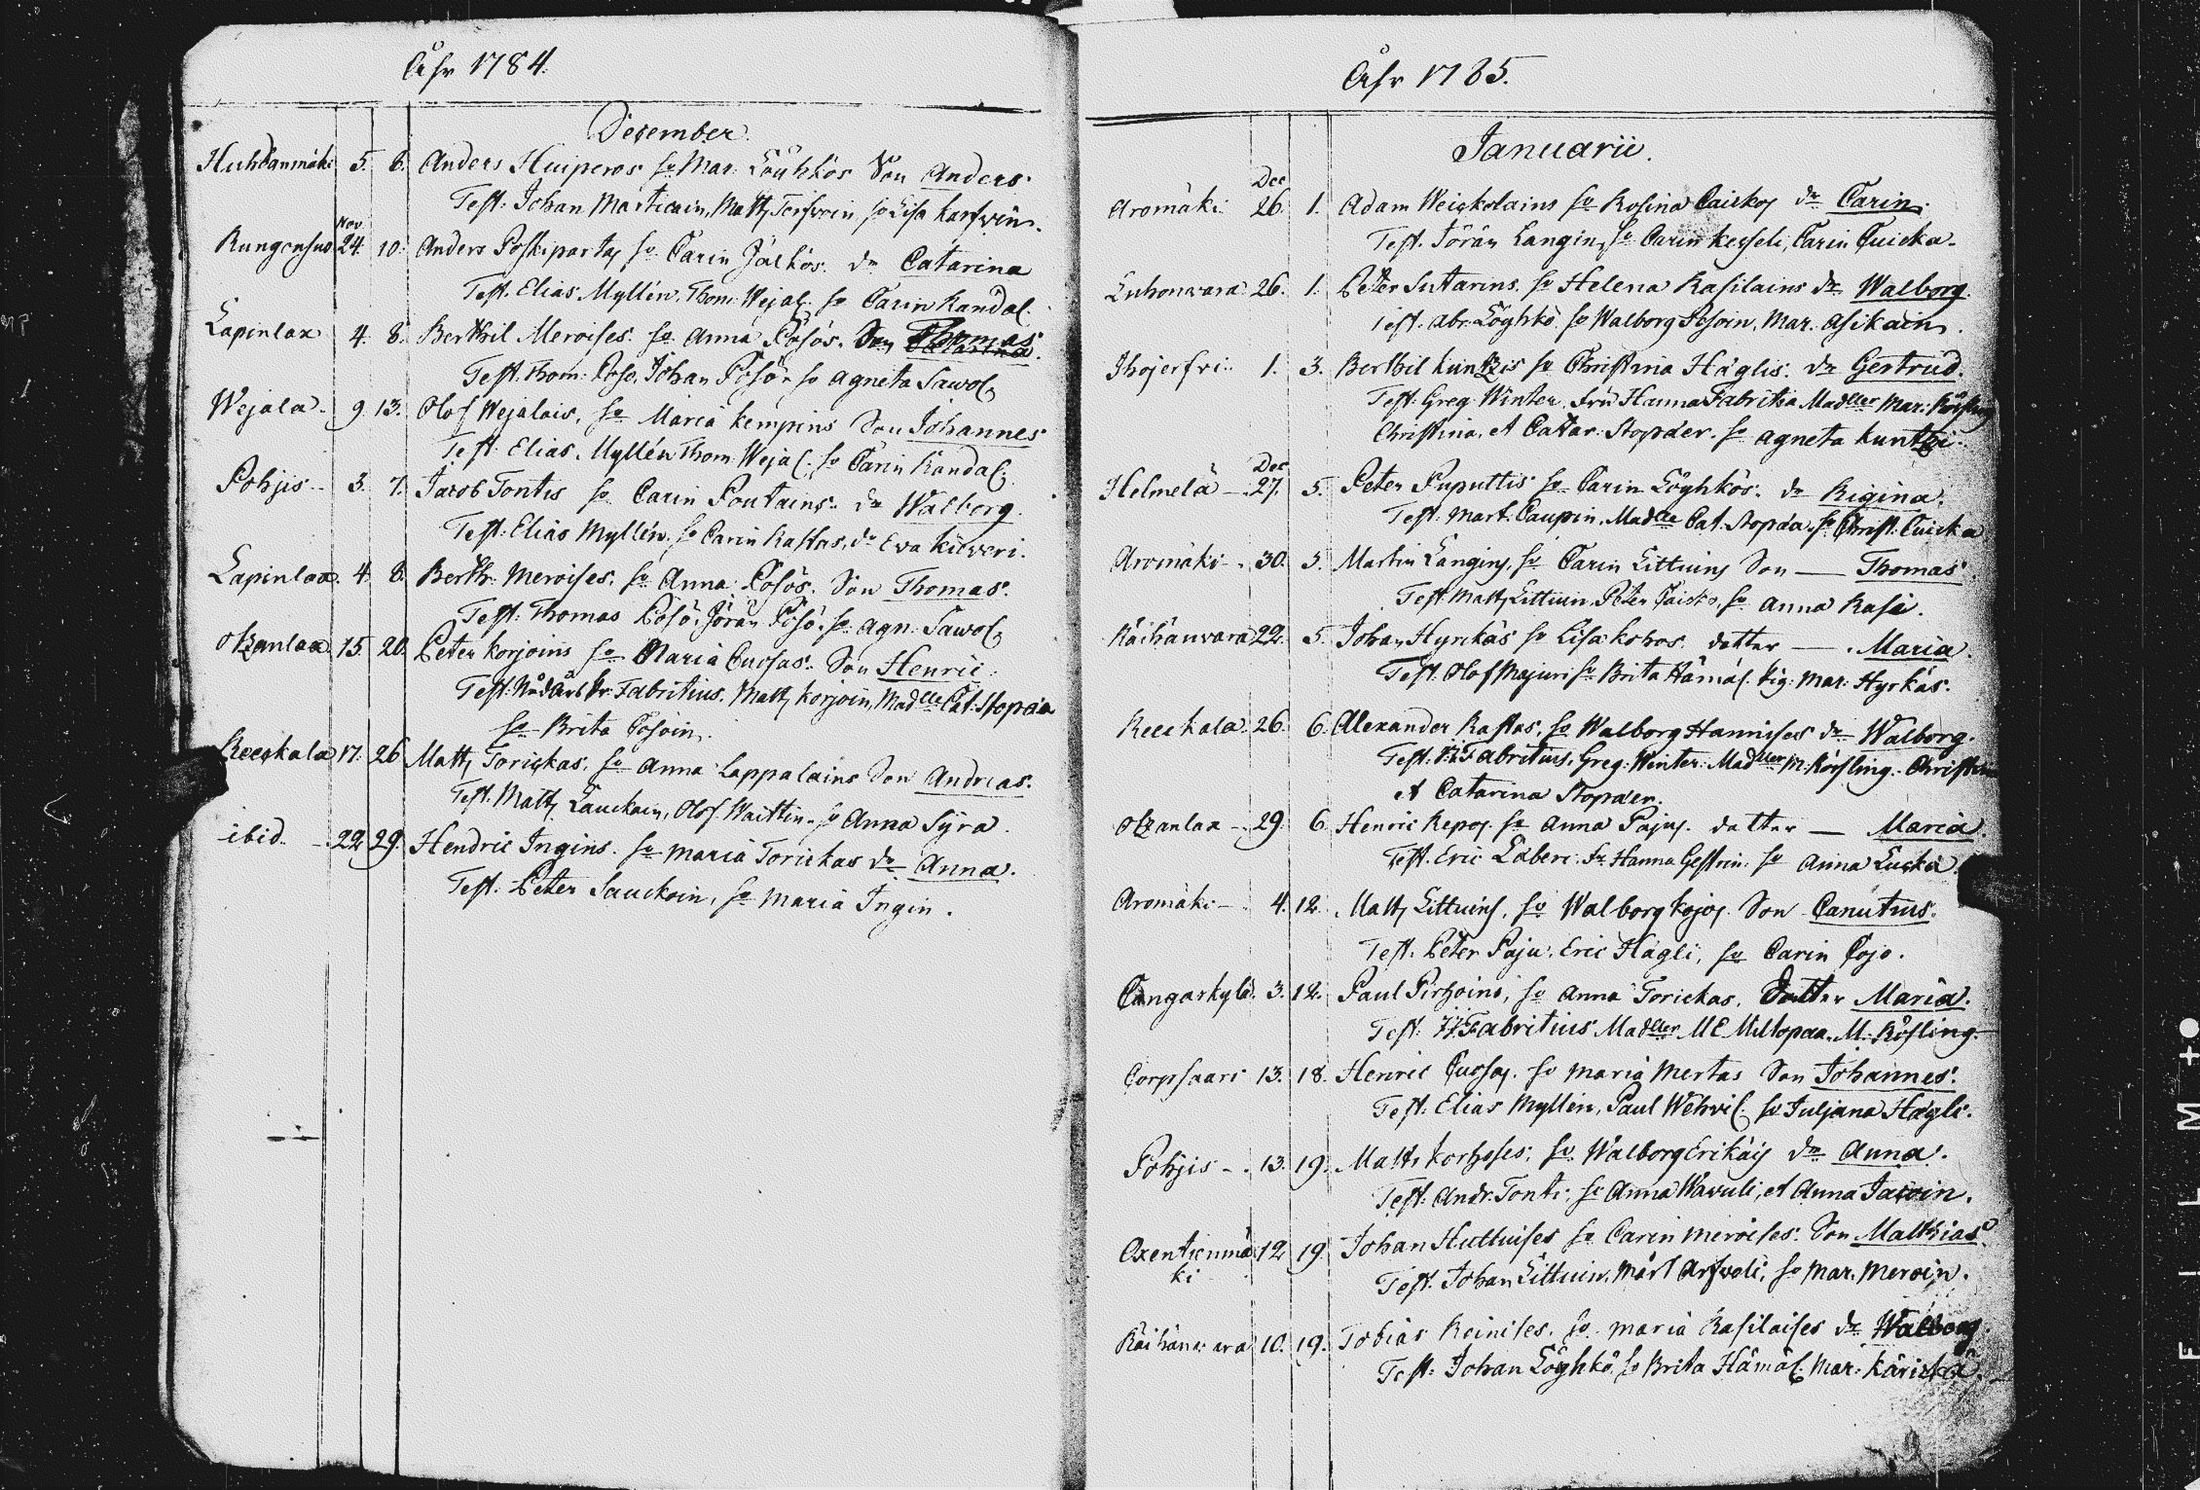 Åhr 1784.
December.
Huhtanmäki 5. 6. Anders Huiperos h:o Mar. Löyhkös Son Anders.
Test. Johan Marticain, Matts Terfvoin, h:o Lisa Karfvin.
Nov.
Kungensuo 24. 10. Anders Poskiparta h:o Carin Jälkös. dr Catarina
Test. Elias Myllén. Thom Wejal. h:o Carin Kandol.
Lapinlax 4. 8. Berthil Meroises. h:o Anna Pösös. Son Thomas.
Test. Thom: Pösö, Johan Pösö. h:o Agneta Sawol.
Wejala. 9. 13. Olof Wejalais, h:o Maria Kempins Son Johannes
Test. Elias. Myllén Thom Wejal: h:o Carin Kandol.
Pohjis.. 3. 7. Jacob Tontis h:o Carin Poutains. dr Walborg.
Test: Elias Myllén. h:o Carin Rastas, dr Eva Kilveri.
Lapinlax. 4. 8. Berth: Meroises. h:o Anna Pösös. Son Thomas.
Test. Thomas Pösö, Jörän Pösö. h:o Agn: Sawol.
Otzanlax 15. 20. Peter Korjoins h:o Maria Cuosas. Son Henric.
Test: Fabritius. Matts Korjoin, Madlle Cat. Stopæa
h:o Brita Tosoin.
Reeskala 17. 26 Matts Torickas. h:o Anna Lappalains Son Andreas.
Test. Matts Lauckain, Olof Waittin. h:o Anna Syra.
ibid. 22 29. Hendric Ingins. h:o Maria Torickas dr Anna.
Test. Peter Sauckoin, h:o Maria Ingin.
Åhr 1785.
Januarii.
Dec
Aromäki 26. 1. Adam Weickolains h:o Rosina Caickos dr Carin.
Test. Jörän Langin, h:o Carin Kesseli, Carin Cuicka.
Luhonvara 26. 1. Peter Sutarins. h:o Helena Rasilains dr Walborg.
Test. Abr. Löyhkö. h:o Walborg Sosoin, Mar. Asikain.
Ihojerfvi. 1. 3. Berthil Kuntzis h:o Christina Häglis. dr Gertrud.
Test. Greg. Winter, Fru Hanna Fabritia Madller Mar. Rösling
Christina, et Catar. Stopæer. h:o Agneta Kuntzi.
Dec
Helmelä 27. 5. Peter Puputtis h:o Carin Löyhkös. dr Rigina.
Test. Mart. Caupin, Madlle Cat. Stopæa. h:o Christ. Cuicka
Aromäki 30. 5. Martin Langins, h:o Carin Littuins Son — Thomas.
Test. Matts Littuin. Peter Caicko, h:o Anna Rasi.
Räihänvara 22. 5. Johan Hyrckäs h:o Lisa Kohos. dotter — Maria.
Test. Olof Majuri h:o Brita Hämäl. Pig. Mar. Hyrkäs.
Reeskala. 26. 6. Alexander Rastas. h:o Walborg Hannises dr Walborg.
Test. Fabritius, Greg. Winter. Madller M. Rösling. Christina
et Catarina Stopæer.
Otzanlax 29. 6 Henric Repos h:o Anna Pajus. dotter — Maria.
Test. Eric Laberi. Fr. Hanna Gestrin. h:o Anna Lucka.
Aromäki 4. 12. Matts Littuins, h:o Walborg Kojos. Son Canutus.
Test. Peter Paju. Eric Hägli, h:o Carin Cojo.
Cangaskylä. 3. 12. Paul Pirhoins, h:o Anna Torickas, Dotter Maria.
Test. Fabritius. Madller M. Rösling.
Corpsaari 13. 18. Henric Cuosas. h:o Maria Mertas Son Johannes.
Test. Elias Myllén, Paul Wehvil. h:o Juljana Hägli.
Pohjis 13. 19. Matts Korhoses. h:o Walborg Erikäis dr Anna.
Test. Andr. Tonti, h:o Anna Wavuli, et Anna
Oxentienmä 12 19. Johan Huttuises h:o Carin Meroises. Son Matthias.
ki
Test. Johan Littuin, Mårt Arfvoli, h:o Mar. Meroin.
Räihänvara 10. 19. Tobias Reinises. h:o Maria Rasilaises dr Walborg.
Test. Johan Löyhkö. h:o Brita Hämäl. Mar. Käricka.